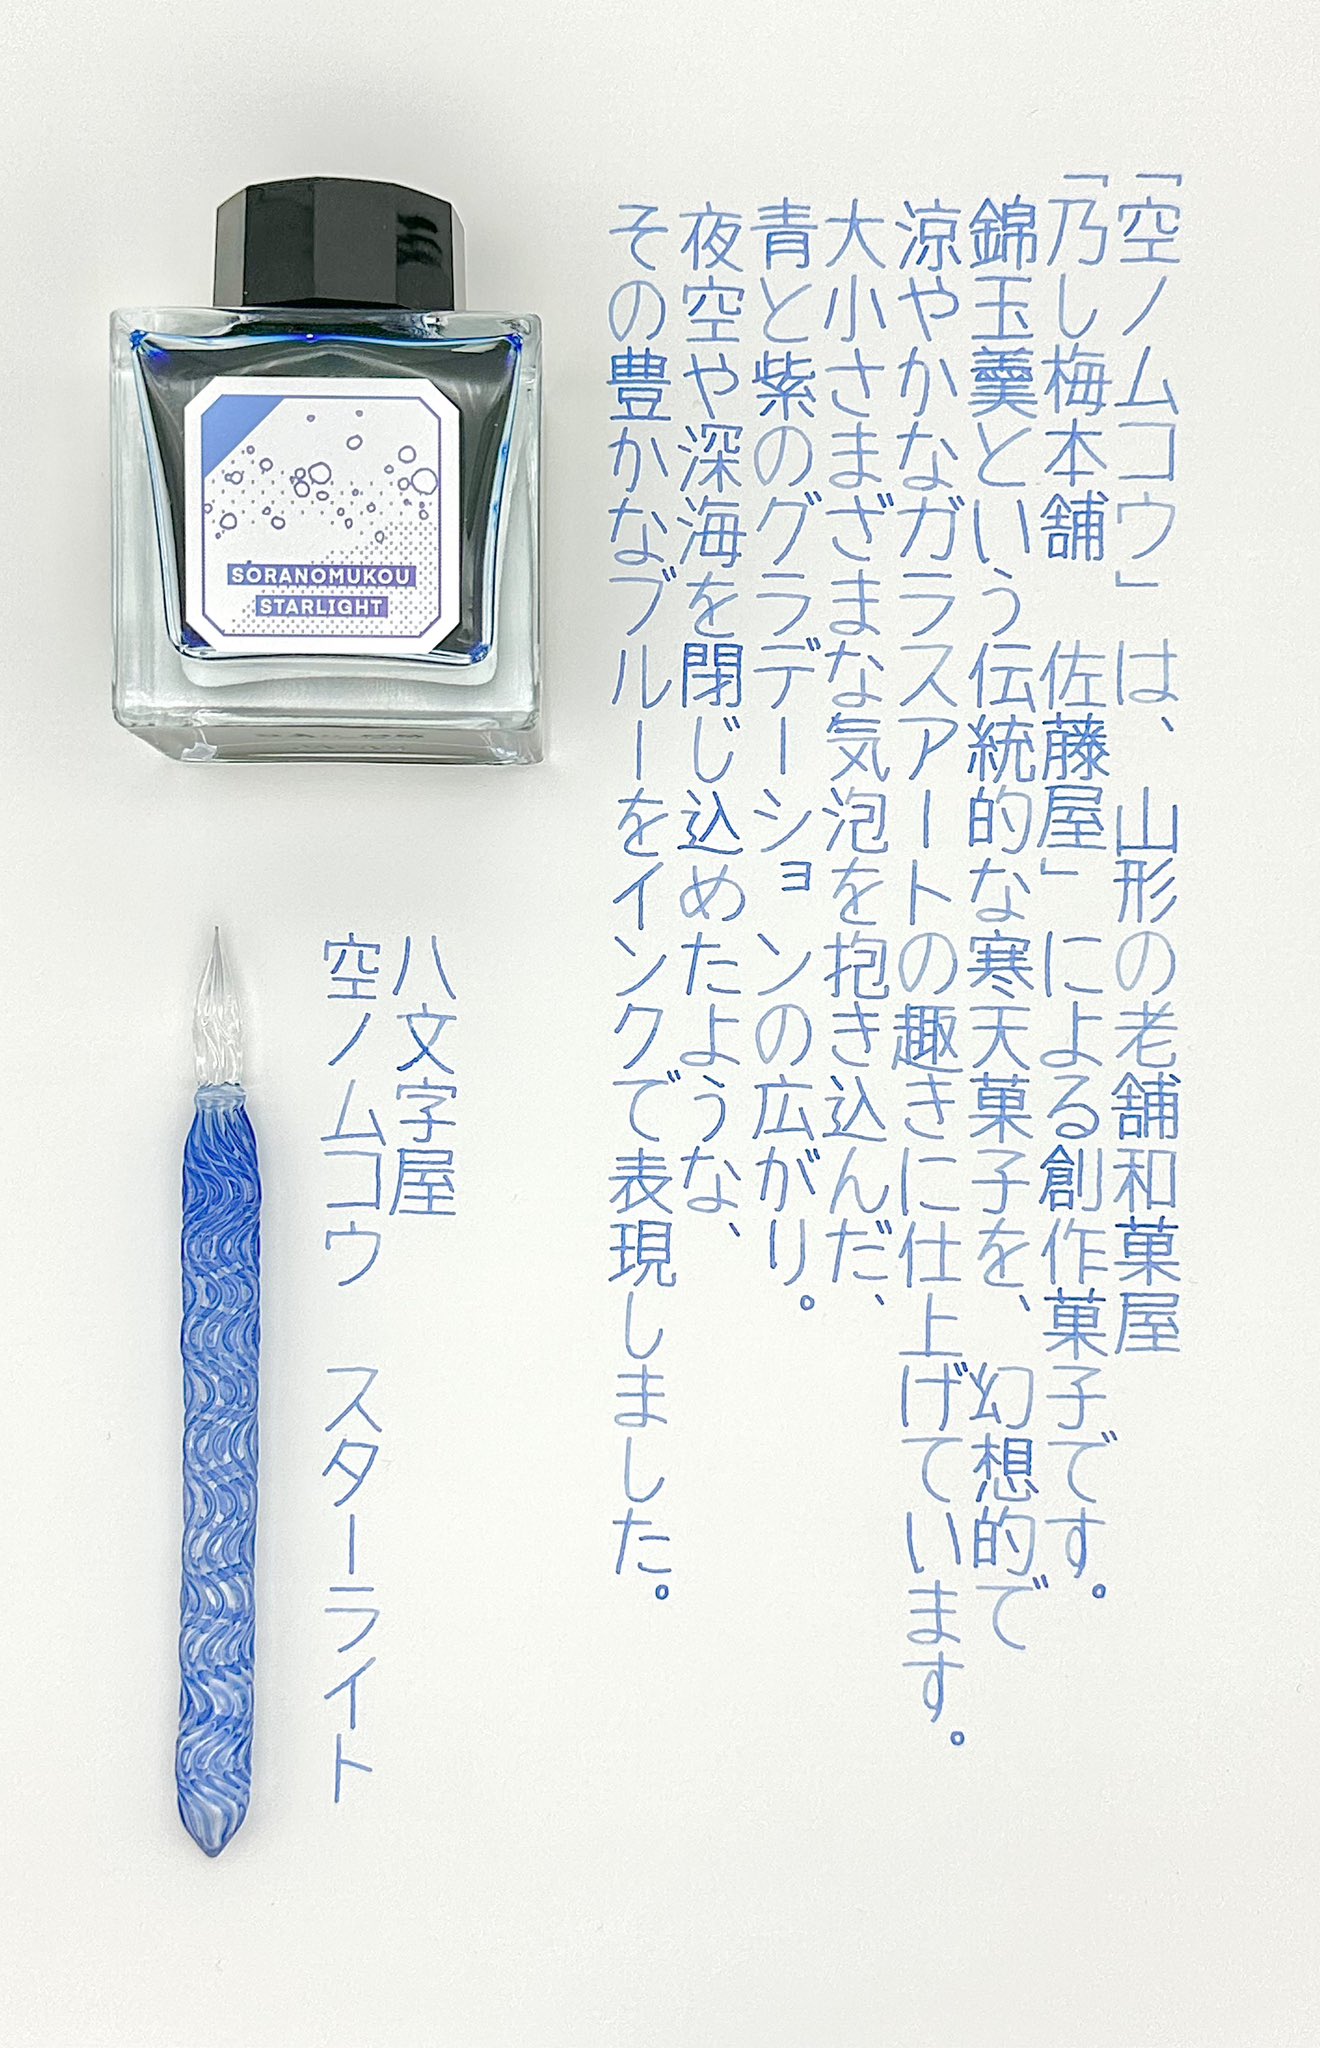 「空ノムコウ」は、山形の老舗和菓屋
「乃し梅本舗 佐藤屋」による創作菓子です。
錦玉羹という伝統的な寒天菓子を、幻想的で
涼やかなガラスアートの趣きに仕上げています。
大小さまざまな気泡を抱き込んだ、
青と紫のグラデーションの広がり。
夜空や深海を閉じ込めたような、
その豊かなブルーをインクで表現しました。
八文字屋
空ノムコウ スターライト
SORANOMUKOU
STARLIGHT